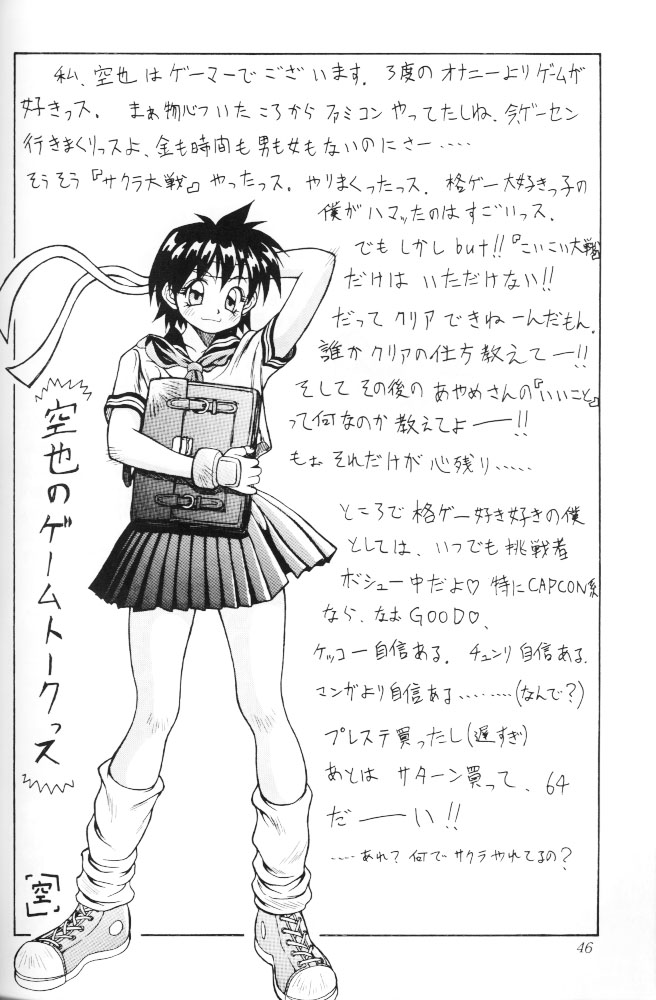 私、空也はゲーマーでございます。3度のオナニーよりゲームが
好きっス。まぁ物心ついたころからファミコンやってたしね、今、ゲーセン
行きまくりっスよ、金も時間も男も女もないのにさー・・・・
そうそう『サクラ大戦』やったっス。やりまくったっス。格ゲー大好きっ子の
僕がハマッたのはすごいっス。
でもしかしbut!!『こいこい大戦』
だけはいただけない!!
だってクリアできねーんだもん。
誰かクリアの仕方教えてー!!
そしてその後のあやめさんの『いいこと』
って何なのか教えてよー!!
もぉそれだけが心残り・・・・・
ところで格ゲー好き好きの僕
としては、いつでも挑戦者
ボシュー中だよ♡ 特にCAPCON系
なら、なおGOOD♡、
ケッコー自信ある。チュンリ自信ある。
マンガより自信ある・・・・・・・・(なんで?)
プレステ買ったし(遅すぎ)
あとはサターン買って、64
だーい!!
・・・・あれ?何でサクラやれてるの?
空也のゲームトークっス
「空」
46